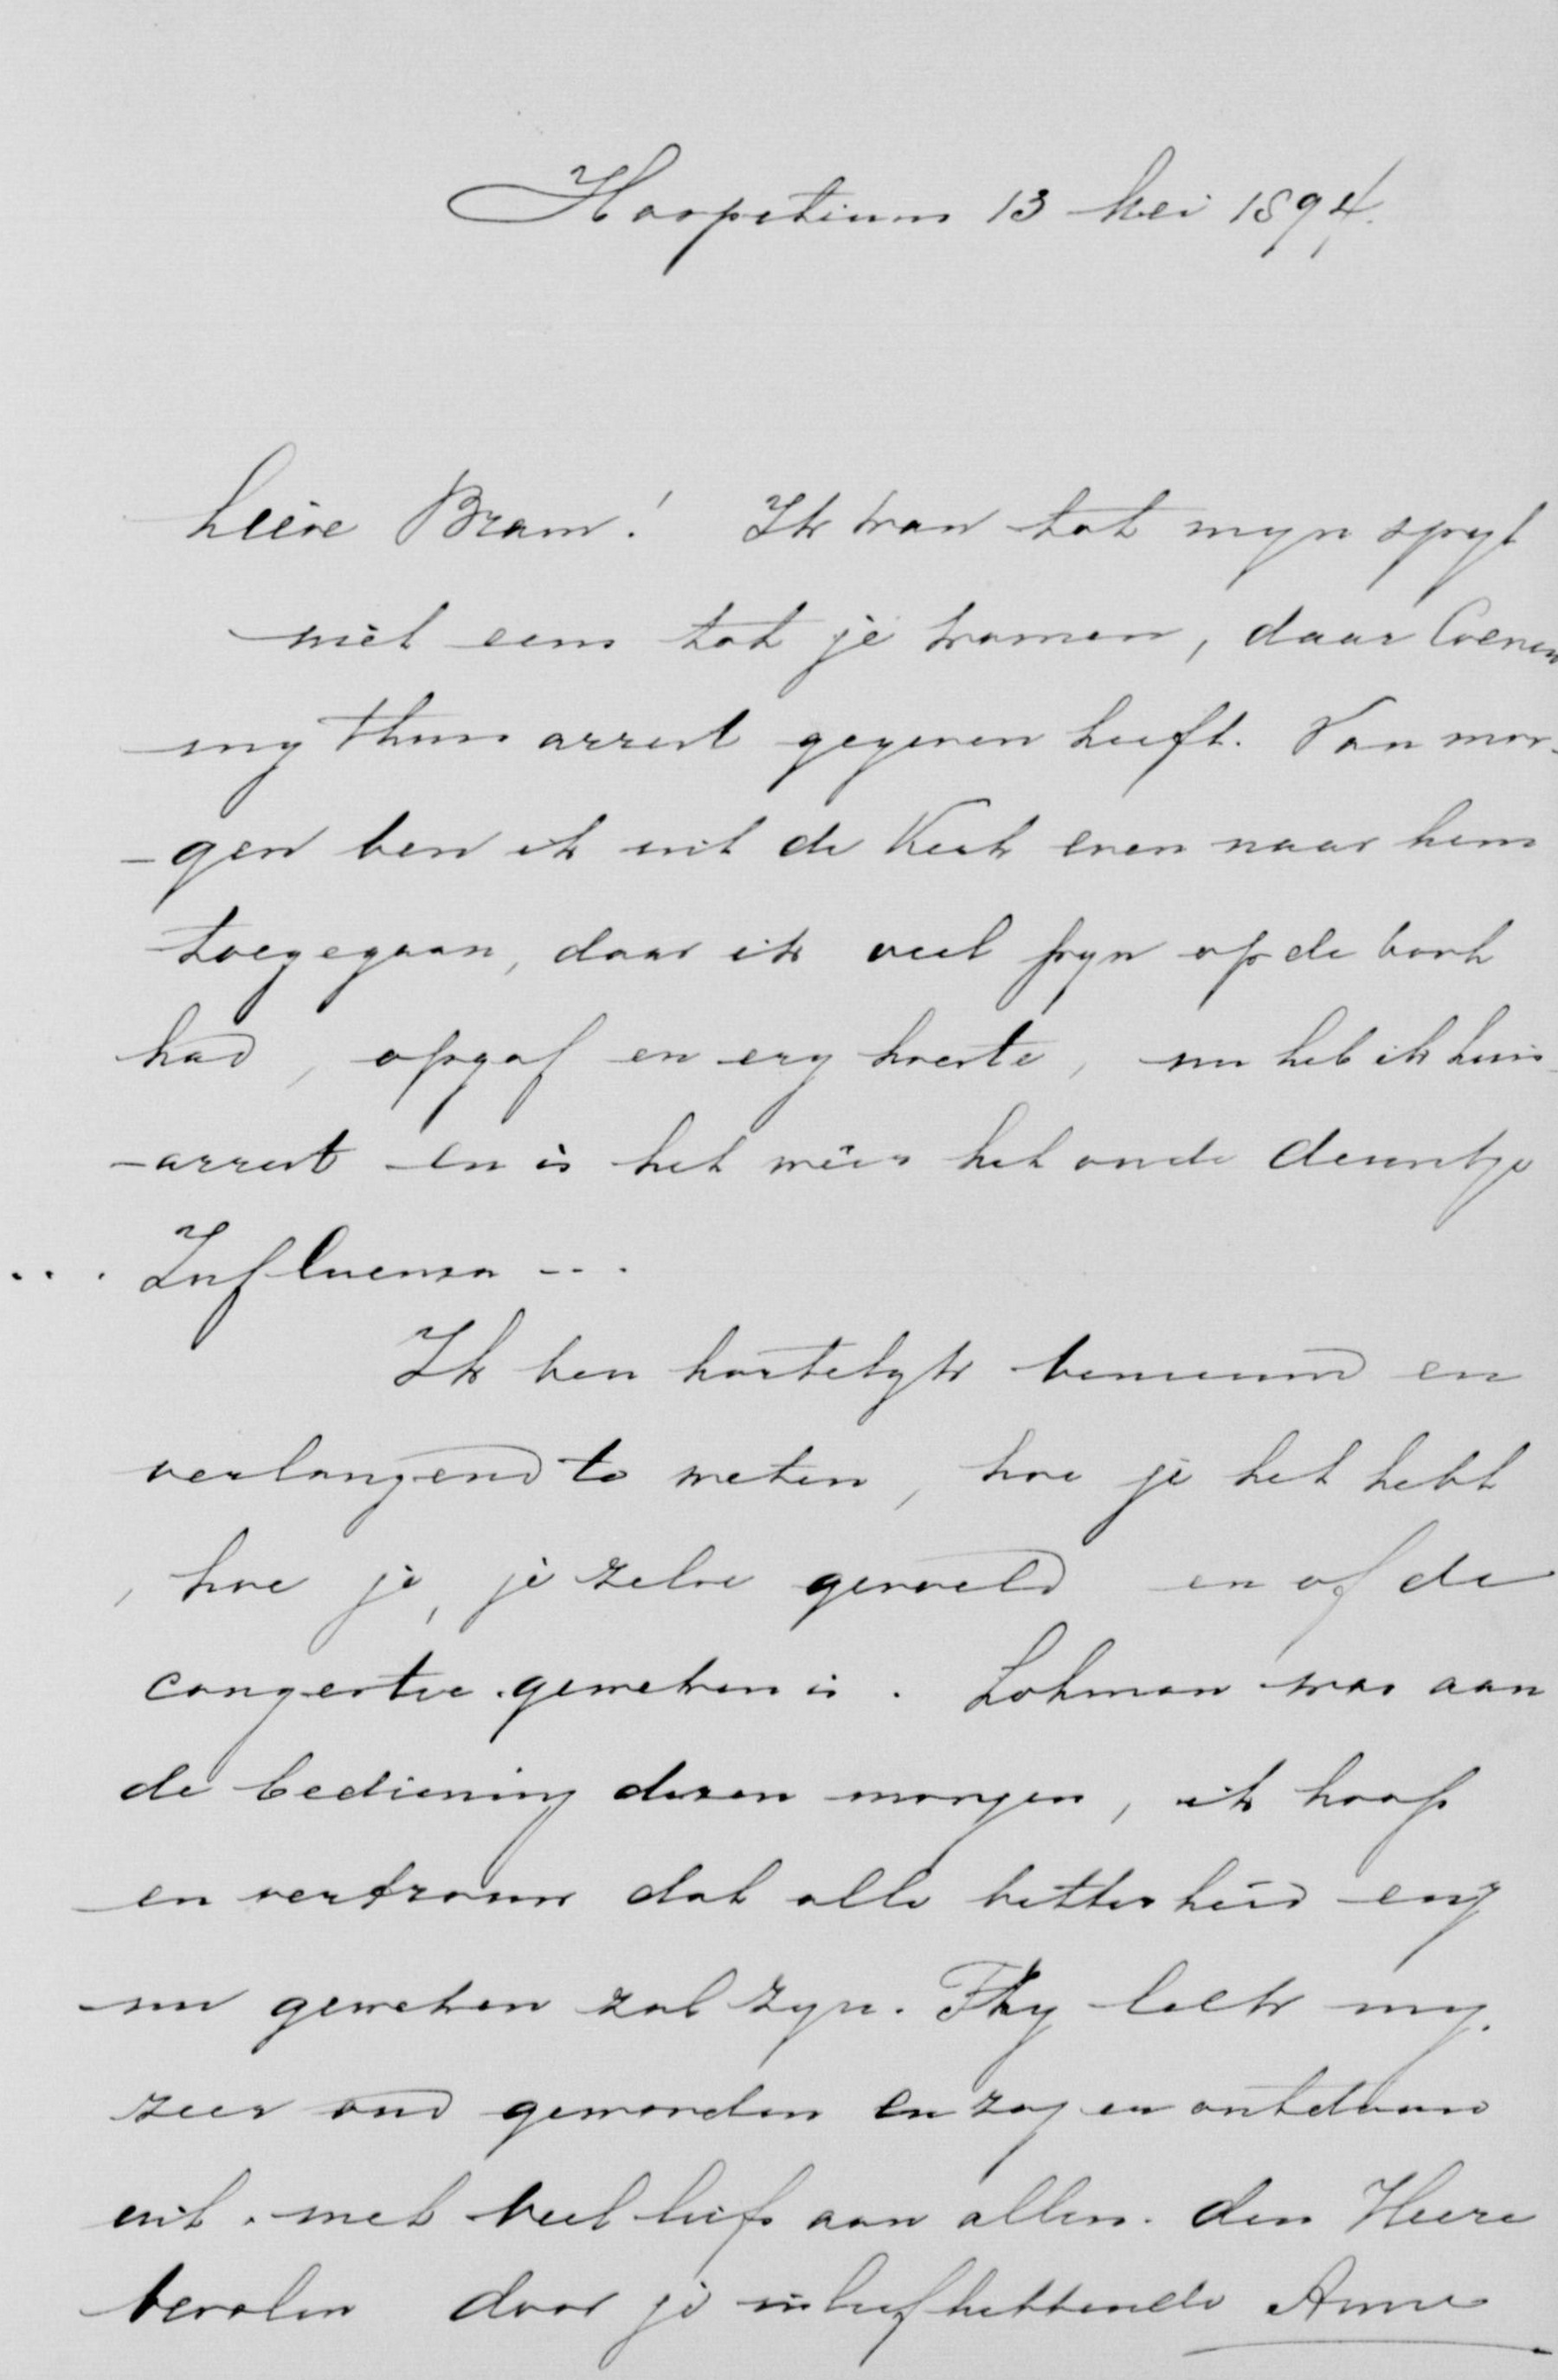 Hospitium 13 Mei 1894.
Lieve Bram! Ik kan tot myn spyt
niet eens tot je komen, daar Coenen
my thuis arrest gegeven heeft. Van mor-
-gen ben ik uit de Kerk even naar hem
toegegaan, daar ik veel pyn op de borst
had, opgaf en erg hoestte, nu heb ik huis-
-arrest en is het weer het oude deuntje
... Influenza ...
Ik ben hartelyk benieuwd en
verlangend te weten, hoe je het hebt
, hoe je, je zelve gevoeld en of de
congestie geweken is. Lohman was aan
de bediening dezen morgen, ik hoop
en vertrouw dat alle bitterheid enz
nu geweken zal zyn. Hy leek my
zeer oud geworden en zag er ontdaan
uit. met veel liefs aan allen. den Heere
bevolen door je liefhebbende Anna